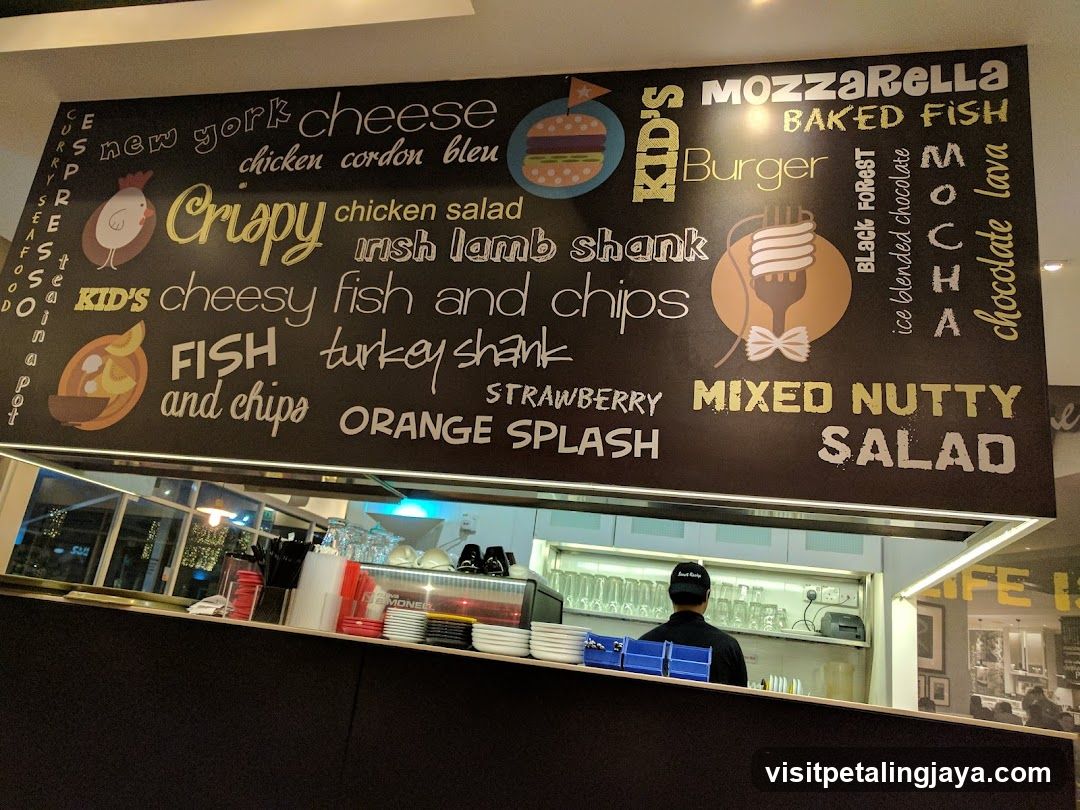 CURRY SEAFOOD
ESPRESSO
tea in a pot
new york cheese
chicken cordon bleu
Crispy chicken salad
irish lamb shank
KID'S cheesy fish and chips
FISH
and chips
turkey shank
STRAWBERRY
ORANGE SPLASH
KID'S
Burger
MOZZARELLA
BAKED FISH
BLACK FOREST
ice blended chocolate
MOCHA
chocolate lava
MIXED NUTTY
SALAD
NEMONELI
LIFE IS
visitpetalingjaya.com